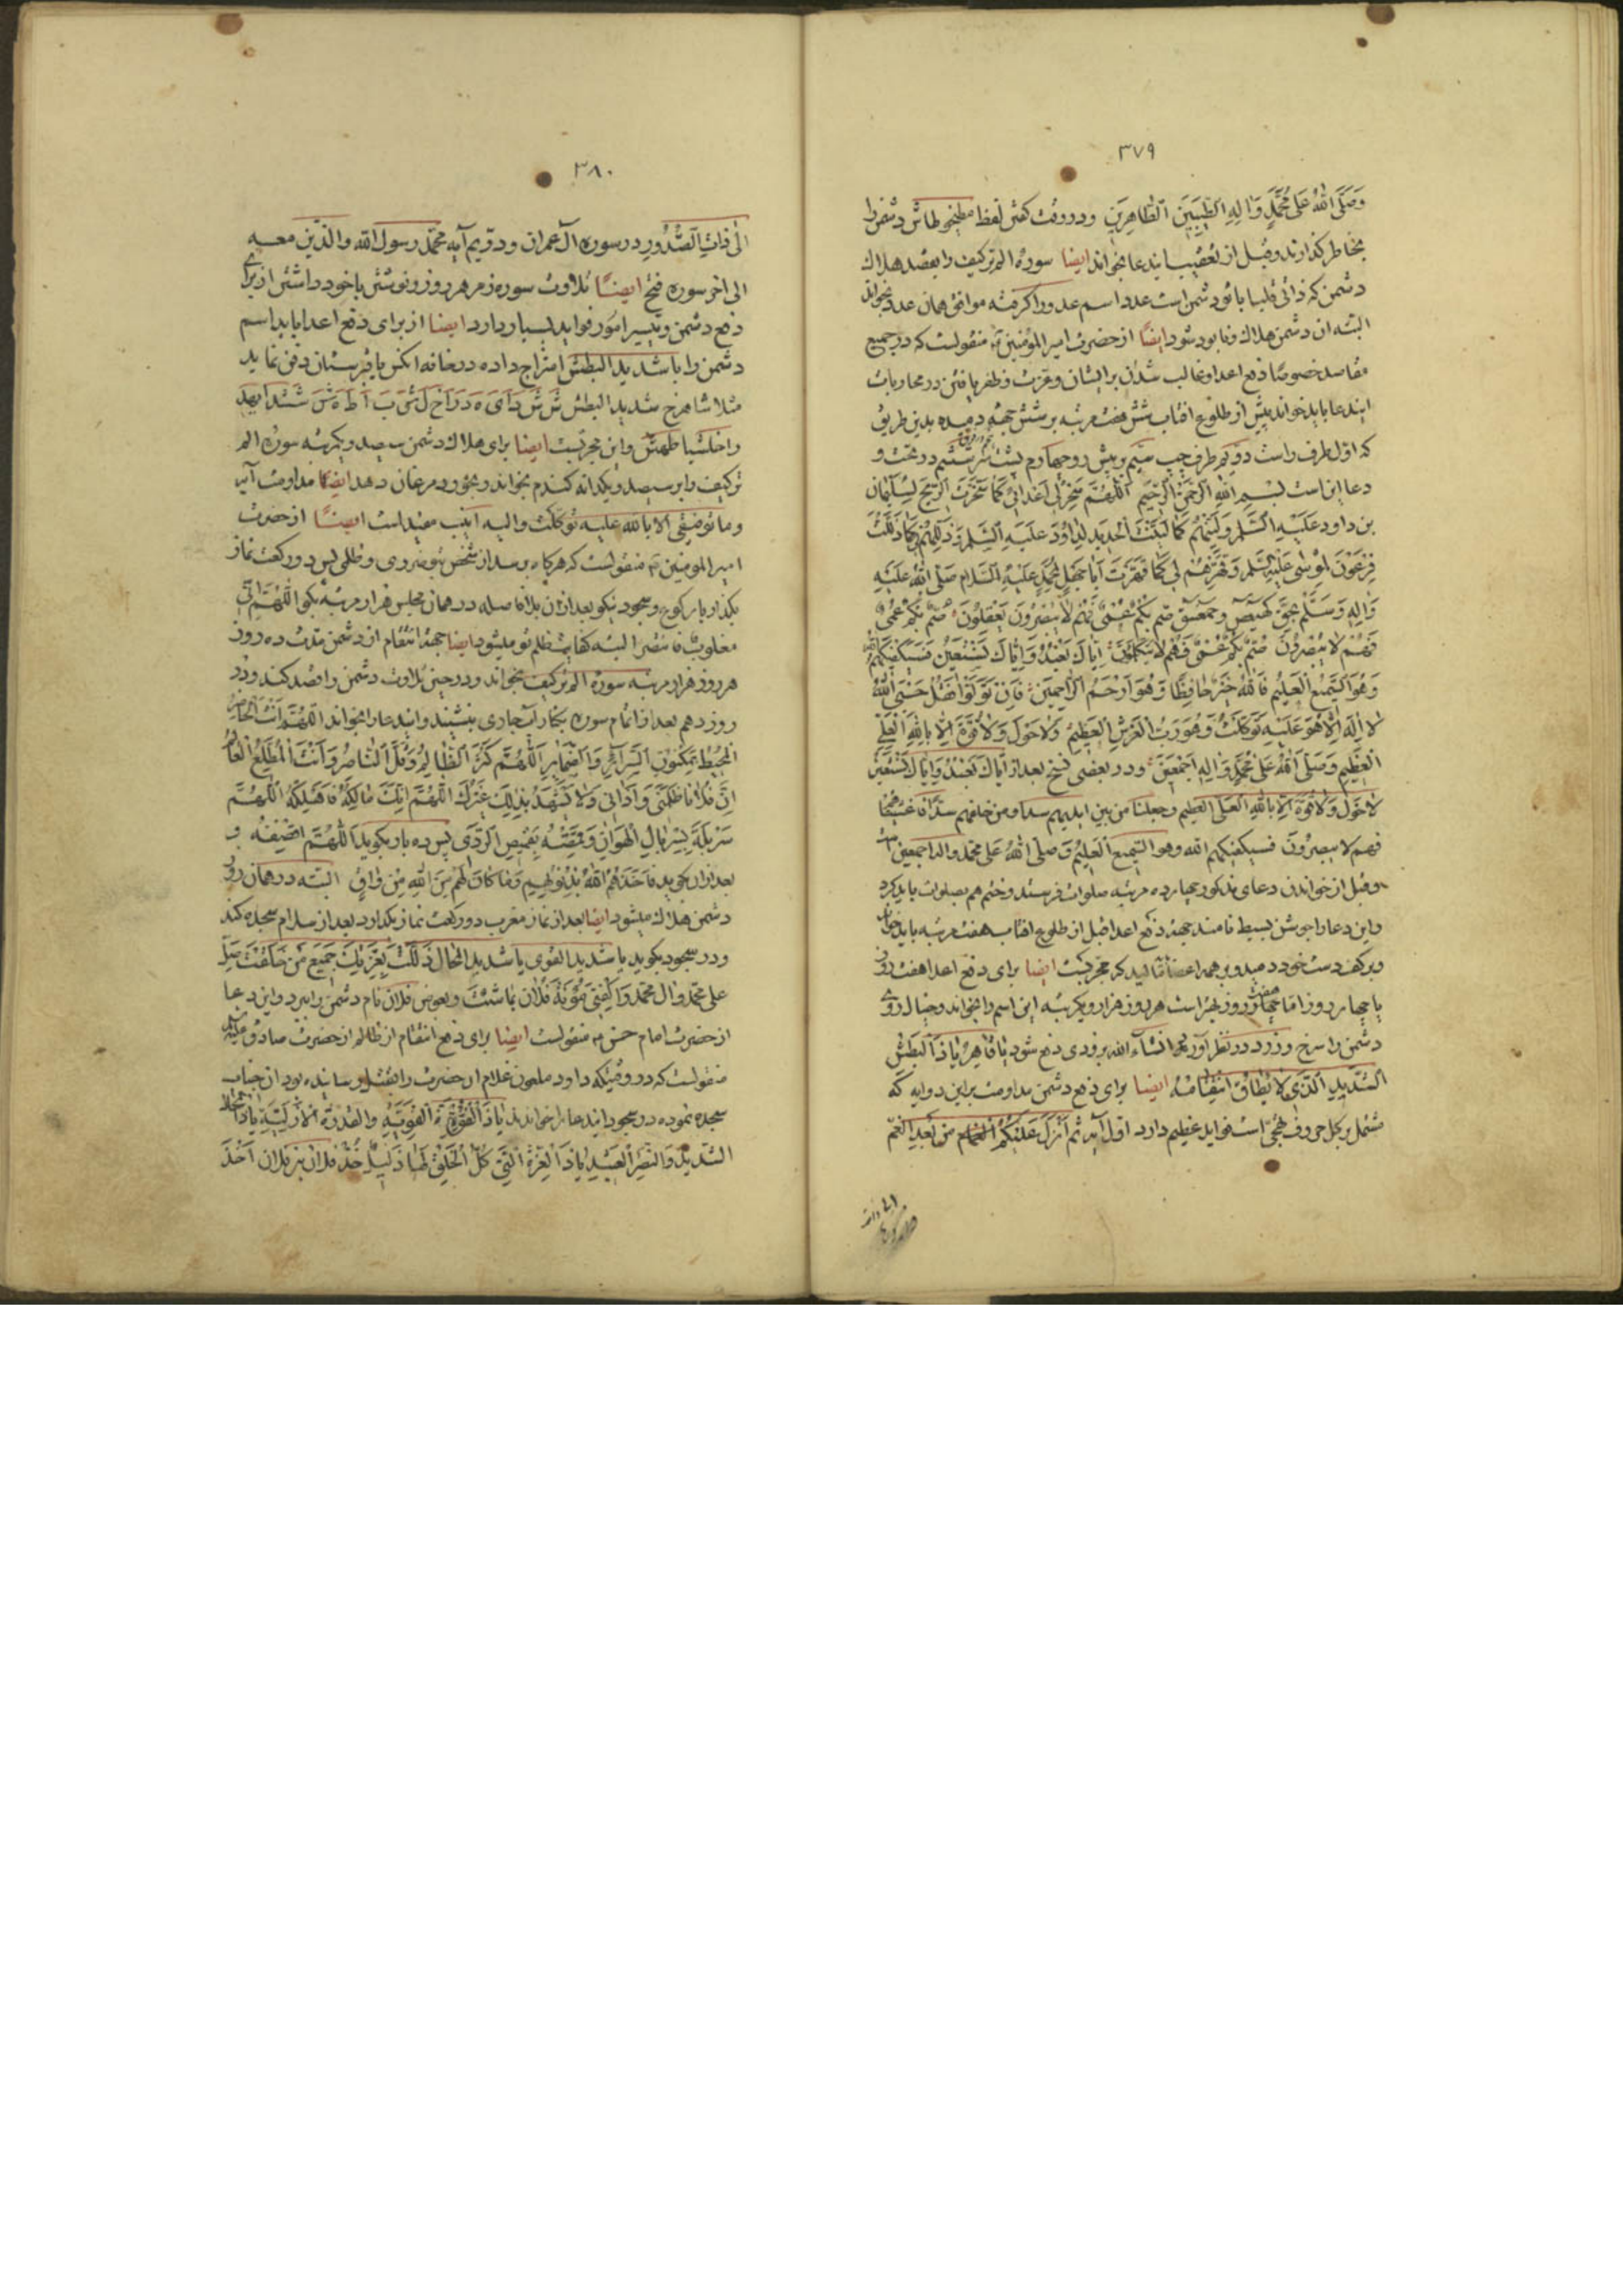 ٣٧٩
وَصَلَّى اللهُ عَلى مُحَمَّدٍ وَالِهِ الطَّيِّبِينَ الطَّاهِرِينَ ودر وقت كفتن لفظ دشمن را
بخاطر كذارند وقبل از تعقيب ايندعا بخواند ايضا سوره الم تركيف را بقصد هلاك
دشمن كه دانى قلبا با تو دشمن است عدد اسم عدو را كرفته موافق همان عدد بخواند
البته ان دشمن هلاك ونابود شود ايضًا از حضرت امير المؤمنين منقولست كه در جميع
مقاصد خصوصًا دفع اعدا وغالب شدن بر ايشان وعزت وظفر يافتن در محاربات
ايندعا بايد خواند پيش از طلوع افتاب شش هفت مرتبه بر شش جهة دميده بدين طريق
كه اوّل طرف راست دويّم طرف چپ سيّم پيش رو چهارم پشت سر ششم در تحت و
دعا اين است بِسْمِ اللهِ الرَّحْمنِ الرَّحِيمِ اَللّهُمَّ سَخِّرْ لى اَعْدائى كَما سَخَّرْتَ الرّيحَ لِسُلَيْمانَ
بن داود عَلَيْهِ السَّلام وَلَيِّنْهُمْ كَما لَيَّنْتَ الْحَديدَ لِداوُدَ عَلَيْهِ السَّلام وَذَلِّلْهُمْ كَما ذَلَّلْتَ
فِرْعَوْنَ لِمُوسى عَلَيْهِ السَّلام وَقَهِّرْهُمْ لى كَما قَهَّرْتَ اَباجَهْلٍ لِمُحَمَّدٍ عَلَيْهِ السَّلام صَلَّى اللهُ عَلَيْهِ
وَالِهِ وَسَلَّمَ بِحَقِّ كهيعص وحمعسق صُمٌّ بُكْمٌ عُمْىٌ فَهُمْ لا يُبْصِرُونَ يَعْقِلُونَ صُمٌّ بُكْمٌ عُمْىٌ
فَهُمْ لا يُبْصِرُونَ صُمٌّ بُكْمٌ عُمْىٌ فَهُمْ لا يَتَكَلَّمُونَ اِيَّاكَ نَعْبُدُ وَاِيَّاكَ نَسْتَعينُ فَسَيَكْفيكَهُمُ اللهُ
وَهُوَ السَّميعُ الْعَليمُ فَاللهُ خَيْرٌ حافِظًا وَهُوَ اَرْحَمُ الرَّاحِمينَ فَاِنْ تَوَلَّوْا فَقُلْ حَسْبِىَ اللهُ
لا اِلهَ اِلَّا هُوَ عَلَيْهِ تَوَكَّلْتُ وَهُوَ رَبُّ الْعَرْشِ الْعَظيمِ وَلا حَوْلَ وَلا قُوَّةَ اِلَّا بِاللهِ الْعَلِىِّ
الْعَظيمِ وَصَلَّى اللهُ عَلى مُحَمَّدٍ وَالِهِ اَجْمَعينَ ودر بعضى نسخ بعد از اِيَّاكَ نَعْبُدُ وَاِيَّاكَ نَسْتَعينُ
لا حَوْلَ وَلا قُوَّةَ اِلَّا بِاللهِ الْعَلِىِّ العظيم وجعلنا من بين ايديهم سدا ومن خلفهم سدًّا فاغشيناهم
فهم لا يبصرُونَ فسيكفيكهم الله وهو السَّميع الْعَليمُ وَصَلَّى اللهُ عَلى محمّد واله اجمعين
وقبل از خواندن دعاى مذكور چهارده مرتبه صلوات فرستد وختم هم بصلوات بايد كرد
واين دعا را جوشن بسيط نامند جهة دفع اعدا قبل از طلوع افتاب هفت مرتبه بايد خواند
وبر كف دست خود دميده بر همه اعضا ماليد كه مجرّبست ايضا براى دفع اعدا هفت روز
يا چهار روز اما هفت روز بهتر است هر روز هزار ويكمرتبه اين اسم را بخواند وخيال روى
دشمن را سرخ وزرد در نظر آورد انشاء الله بزودى دفع شود يا قاهِرُ يا ذَا الْبَطْشِ
الشَّديدِ الَّذى لا يُطاقُ انْتِقامُهُ ايضا براى دفع دشمن مداومت بر اين دو ايه كه
مشتمل بر كل حروف تهجّى است فوايد عظيم دارد اوّل آيه ثمّ اَنْزَلَ عَلَيْكُمْ من بَعْدِ الغمّ
٣٨٠
الى ذات الصُّدُورِ در سوره آل عمران ودويّم آيه محمّد رسول الله والّذين معه
الى اخر سوره فتح ايضًا تلاوت سوره زمر هر روز ونوشتن با خود داشتن از براى
دفع دشمن وتيسير امور فوايد بسيار دارد ايضا از براى دفع اعدا بايد اسم
دشمن را با شديد البطش امتزاج داده در خانه انكس يا قبرستان دفن نمايد
مثلا شاهرخ شديد البطش
واين مجرّبست ايضا براى هلاك دشمن سيصد ويكمرتبه سوره الم
تركيف را بر سيصد ويكدانه كندم بخواند وبخورد مرغان دهد ايضًا مداومت آيه
وما توفيقى الا بالله عليه توكّلت واليه انيب مفيد است ايضًا از حضرت
امير المومنين منقولست كه هركاه برسد از شخص بتو ضررى وظلمى پس دو ركعت نماز
بكذار با ركوع وسجود نيكو بعد از ان بلا فاصله در همان مجلس هزار مرتبه بكو اللّهُمَّ اِنّى
مغلوبٌ فانتصر البته كفايت ظلم تو ميشود ايضا جهة انتقام از دشمن مدّت ده روز
هر روز هزار مرتبه سوره الم تركيف بخواند ودر حين تلاوت دشمن را قصد كند ودر
روز دهم بعد از اتمام سوره بكنار آب جارى بنشيند وايندعا را بخواند اللّهُمَّ اَنْتَ الْحاضِرُ
الْمُحيطُ بِمَكْنُونِ السَّرائِرِ وَالضَّمايِرِ اَللّهُمَّ كَثُرَ الظَّالِمُ وَقَلَّ النَّاصِرُ وَاَنْتَ الْمُطَّلِعُ الْعالِمُ
اِنَّ فُلانًا ظَلَمَنى وَآذانى وَلا يَشْهَدُ بِذلِكَ غَيْرُكَ اَللّهُمَّ اِنَّكَ مالِكُهُ فَاَهْلِكْهُ اَللّهُمَّ
سَرْبِلْهُ بِسِرْبالِ الْهَوانِ وَقَمِّصْهُ بِقَميصِ الرَّدى پس ده بار بكويد اَللّهُمَّ اقْصِفْهُ و
بعد از ان بكويد فَاَخَذَهُمُ اللهُ بِذُنُوبِهِمْ وَما كانَ لَهُمْ مِنَ اللهِ مِنْ واقٍ البته در همان روز
دشمن هلاك ميشود ايضا بعد از نماز مغرب دو ركعت نماز بكذارد بعد از سلام سجده كند
ودر سجود بكويد يا شديد القوى يا شديد المحال ذَلَّلْتَ بِعِزَّتِكَ جَميعَ مَنْ خَلَقْتَ صَلِّ
على محمّد وال محمّد وَاكْفِنى مَؤُنَةَ فُلان بِما شِئْتَ وبعوض فلان نام دشمن را ببرد واين دعا
از حضرت امام حسن منقولست ايضا براى دفع انتقام از ظالم از حضرت صادق عليه
منقولست كه در وقتيكه داود ملعون غلام ان حضرت را بقتل رسانيده بود ان جناب
سجده نموده در سجود ايندعا را خواندند يا ذَا الْقُوَّةِ الْقَوِيَّةِ والقُدْرَةِ الْاَزَلِيَّةِ يا ذَا
الشَّديد وَالنَّصْرِ الْعَتيدِ يا ذَا الْعِزَّةِ الَّتى كُلُّ الْخَلْقِ لَها ذَليلٌ خُذْ فلان بن فلان اَخْذَ